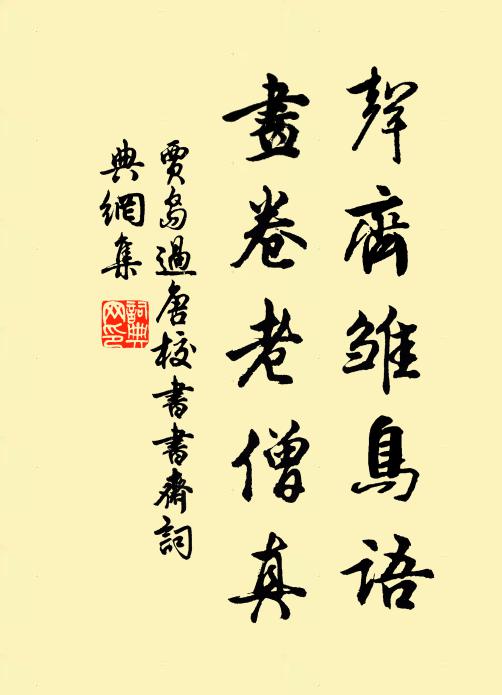 聲齊雛鳥語
畫卷老僧真
賈島過唐校書書齋詞
典網集
詞典
网印